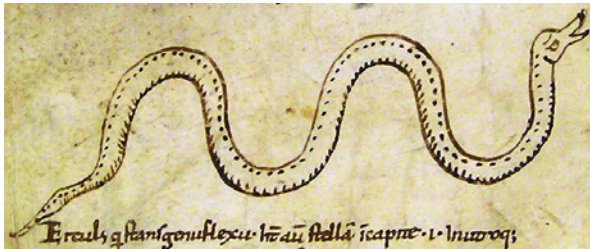 Erculs q stansgenuflexu · ht aū stellā īcapite · i · Inutroq;